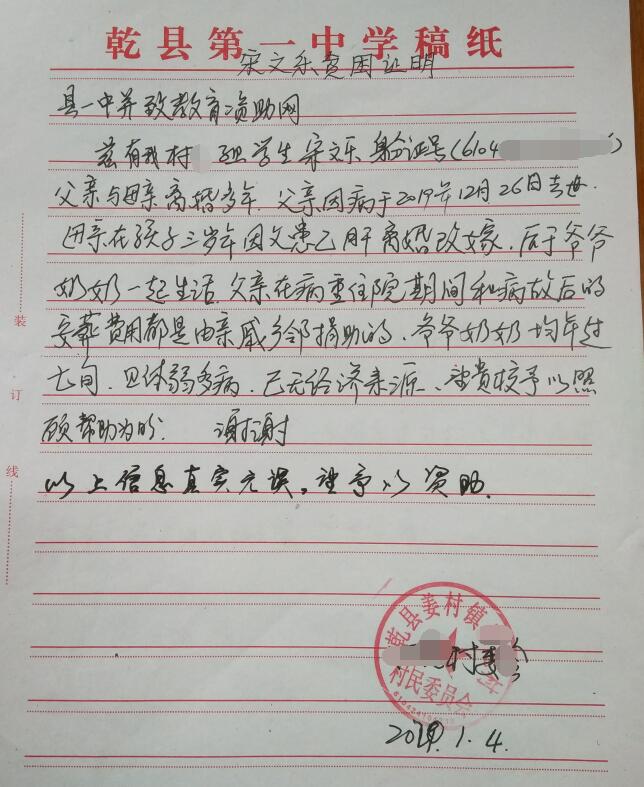 乾县第一中学稿纸
宋文乐贫困证明
县一中并致教育资助网
兹有我村 组学生宋文乐身份证号(6104 )
父亲与母亲离婚多年.父亲因病于2019年12月26日去世.
母亲在孩子三岁年因父患乙肝离婚改嫁.后于爷爷
奶奶一起生活.父亲在病重住院期间和病故后的
安葬费用都是由亲戚乡邻捐助的.爷爷奶奶均年过
七旬.且体弱多病.已无经济来源.望贵校予以照
顾帮助为盼. 谢谢
以上信息真实无误,望予以资助.
装
订
线
乾县姜村镇 村
村民委员会
村委会
1.4.